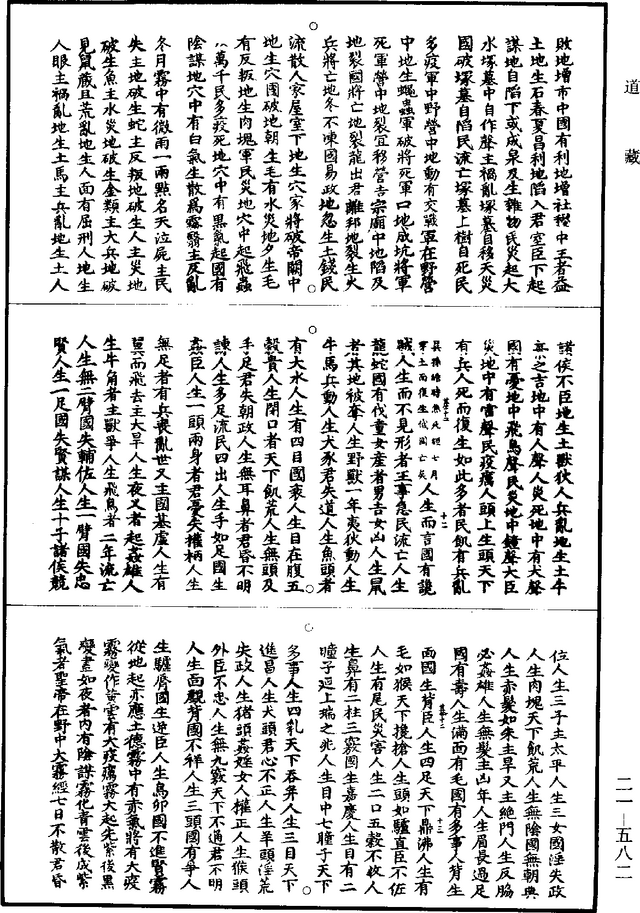 道藏
敗地增市中國有利地增社稷中王者益
土地生石春夏昌利地陷入君室臣下起
謀地自陷下或成泉及生雜物民災起大
水塚墓中自作聲主禍亂塚墓自移天災
國破塚墓自陷民流亡塚墓上樹自死民
多疫軍中野營中地動有交戰軍在野營
中地生蠅蟲軍破將死軍口地成坑將軍
死軍營中地裂宜移營吉宗廟中地陷及
地裂國將亡地裂龍出君離邦地裂生火
兵將亡地冬不凍國易政地忽生土錢民
流散人家屋室下地生穴家將破帝闕中
地生穴國破地朝生毛有水災地夕生毛
有反叛地生肉塊軍民災地穴中起飛蟲
萬千民多疫死地穴中有黑氣起國有
陰謀地穴中有白氣生散為霧翳主反亂
冬月霧中有微雨一兩點名天泣屍主民
失主地破生蛇主反叛地破生人主災地
破生魚主水災地破生金類主大兵地破
見鼠藏且荒亂地生人面有屈刑人地生
人眼主禍亂地生土馬主兵亂地生土人
諸侯不臣地生土獸狄人兵亂地生土牛
之吉地中有人聲人災死地中有犬聲
國有憂地中飛鳥聲民災地中鐘聲大臣
災地中有雷聲民疫癘人頭上生頭天下
有兵人死而復生如此多者民飢有兵亂
人生而言國有讒
賊人生而不見形者王事急民流亡人生
龍蛇國有伐童女產者男吉女凶人生鼠
者其地被奪人生野獸一年夷狄動人生
牛馬兵動人生犬豕君失道人生魚頭者
有大水人生有四目國衰人生目在腹五
穀貴人生閉口者天下飢荒人生無頭及
手足君失朝政人生無耳鼻者君昏不明
諫人生多足流民四出人生手如足國生
姦臣人生一頭兩身者君憂失權柄人生
無足者有兵喪亂世又主國基虛人生有
翼而飛去主大旱人生夜叉者起姦雄人
生牛角者主獸爭人生飛鳥者二年流亡
人生無二臂國失輔佐人生一臂國失忠
賢人生一足國失賢謀人生十子諸侯競
位人生三子主太平人生三女國淫失政
人生肉塊天下飢荒人生無陰國無朝典
人生赤髮如朱主旱又主絕門人生反脇
必姦雄人生無髮主凶年人生眉長過足
國有壽人生滿面有毛國有多事人背生
兩國生背臣人生四足天下鼎沸人生有
毛如猴天下攙搶人生頭如驢直臣不佐
人生有尾民災害人生二口五穀不收人
生鼻有二柱三竅國生嘉慶人生目有二
瞳子迴上端之兆人生目中七瞳子天下
多事人生四乳天下吞并人生三目天下
進昌人生犬頭君心不正人生羊頭淫荒
失政人生猪頭姦婬女人權正人生猴頭
外臣不忠人生無九竅天下不通君不明
人生面觀背國不祥人生三頭國有爭人
生驢脣國生逆臣人生鳥卵國不進賢霧
從地起亦應土德霧中有赤氣將有大疫
霧變作黃雲有大疫癘霧大起先紫後黑
變晝如夜者內有陰謀霧化青雲後成紫
氣者聖帝在野中大霧經七日不散君昏
二一—五八二